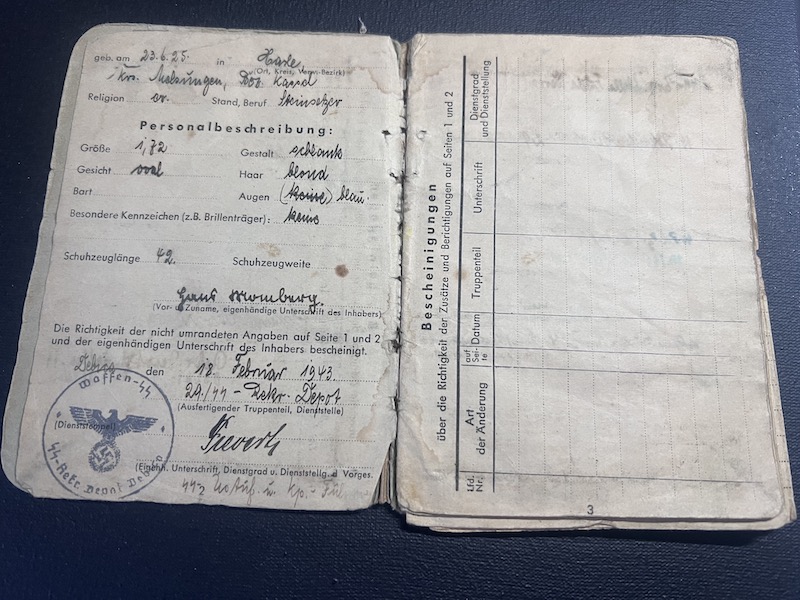 geb. am 23.6.25. in Harle,
(Ort, Kreis, Verw.-Bezirk)
Krs. Melsungen, Bez. Kassel
Religion ev. Stand, Beruf Steinsetzer
Personalbeschreibung:
Größe 1,72 Gestalt schlank
Gesicht oval Haar blond
Bart Augen (keine) blau.
Besondere Kennzeichen (z.B. Brillenträger): keine
Schuhzeuglänge 42. Schuhzeugweite
Hans Momberg.
(Vor- u. Zuname, eigenhändige Unterschrift des Inhabers)
Die Richtigkeit der nicht umrandeten Angaben auf Seite 1 und 2
und der eigenhändigen Unterschrift des Inhabers bescheinigt.
Debica den 18. Februar 1943.
29./SS-Rekr. Depot
(Ausfertigender Truppenteil, Dienststelle)
Waffen-SS
(Dienststempel)
SS-Rekr. Depot Debica
(Eigenh. Unterschrift, Dienstgrad u. Dienststellg. d. Vorges.
Bescheinigungen
über die Richtigkeit der Zusätze und Berichtigungen auf Seiten 1 und 2
Lfd. Nr.
Art der Änderung
auf Sei- te
Datum
Truppenteil
Unterschrift
Dienstgrad und Dienststellung
3